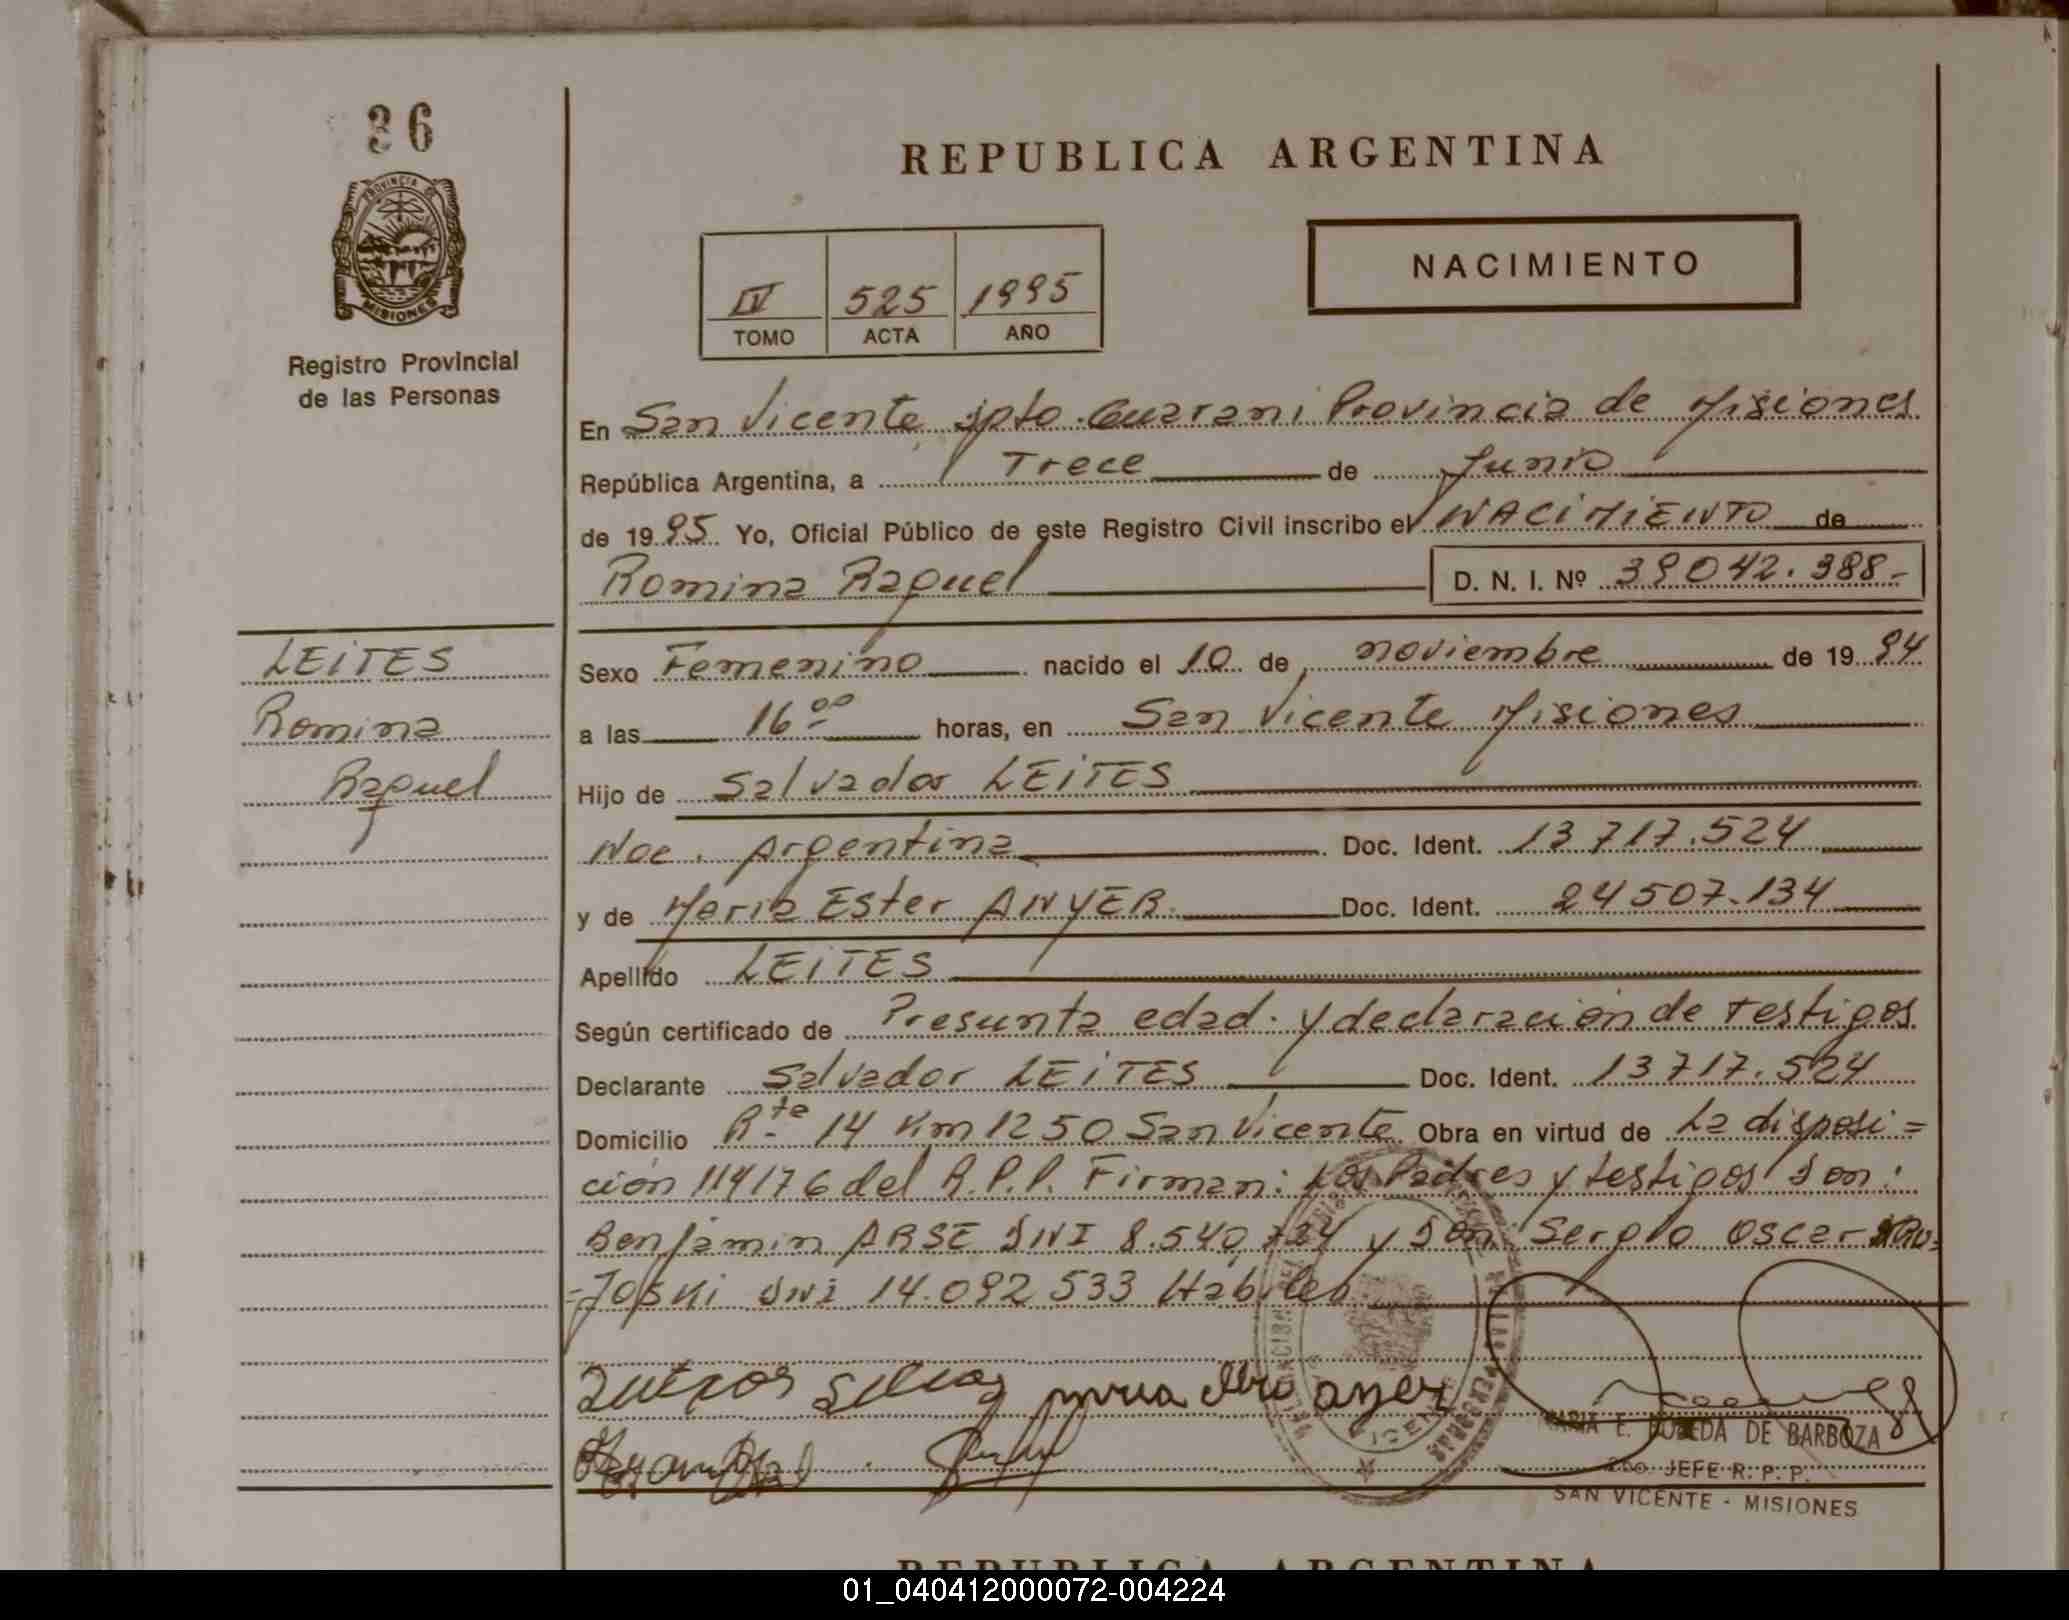 36
PROVINCIA DE
MISIONES
Registro Provincial
de las Personas
REPUBLICA ARGENTINA
IV 525 1995
TOMO ACTA AÑO
NACIMIENTO
En San Vicente dpto. Guarani Provincia de Misiones
República Argentina, a Trece de Junio
de 1995 Yo, Oficial Público de este Registro Civil inscribo el NACIMIENTO de
Romina Raquel D. N. I. Nº 39042.388-
LEITES
Romina
Raquel
Sexo Femenino nacido el 10 de noviembre de 1994
a las 16 00 horas, en San Vicente Misiones
Hijo de Salvador LEITES
Nac. Argentina Doc. Ident. 13717.524
y de Maria Ester ANYER Doc. Ident. 24507.134
Apellido LEITES
Según certificado de Presunta edad. y declaración de Testigos
Declarante Salvador LEITES Doc. Ident. 13717.524
Domicilio Rta 14 Km 1250 San Vicente Obra en virtud de La disposi=
ción 114176 del R.P.P. Firman: Los Padres y testigos Don:
Benjamin ARSE DNI 8.540.724 y Don Sergio Oscar
=Joski DNI 14.092.533 Habiles
MARIA E. DE BARBOZA
JEFE R. P. P.
SAN VICENTE - MISIONES
REPUBLICA ARGENTINA
01_040412000072-004224